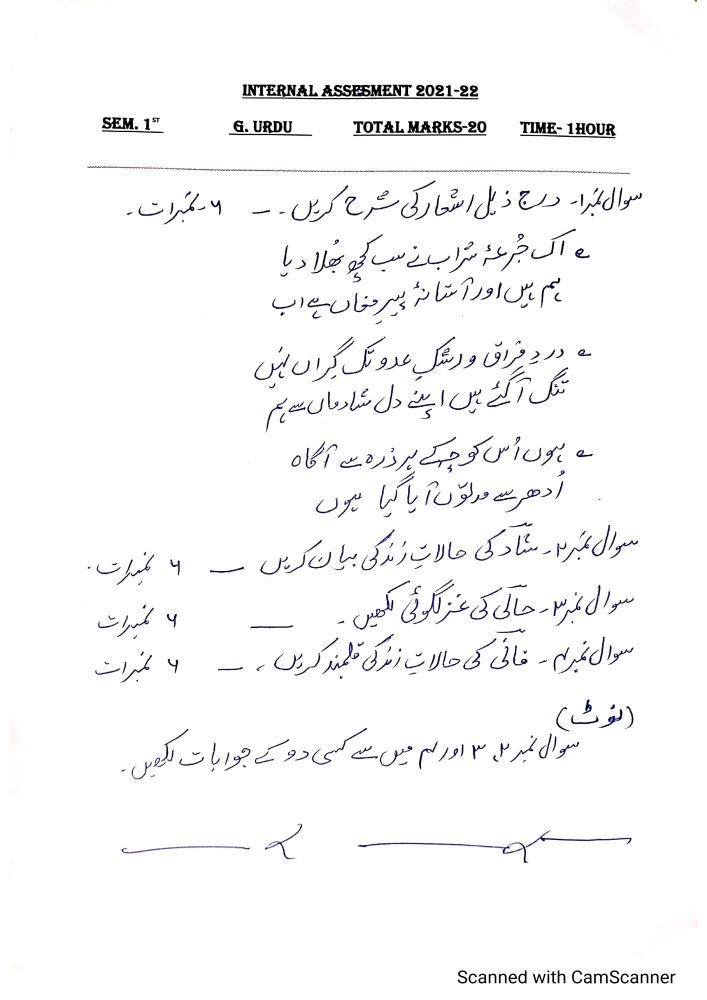 INTERNAL ASSESMENT 2021-22
SEM. 1ST G. URDU TOTAL MARKS-20 TIME- 1HOUR
سوال نمبر۱۔ درج ذیل اشعار کی شرح کریں۔ — ۶۔ نمبرات۔
؎ اک جُرعۂ شراب نے سب کچھ بُھلا دیا
ہم ہیں اور آستانۂ پیرِ مغاں ہے اب
؎ دردِ فراق و رشکِ عدو تک گِراں نہیں
تنگ آ گئے ہیں اپنے دل شادماں سے ہم
؎ ہوں اُس کوچہ کے ہر ذرہ سے آگاہ
اُدھر سے مدتوں آیا گیا ہوں
سوال نمبر۲۔ شاد کی حالاتِ زندگی بیان کریں — ۶ نمبرات۔
سوال نمبر۳۔ حالی کی غزلگوئی لکھیں۔ — ۶ نمبرات
سوال نمبر۴۔ فانی کی حالاتِ زندگی قلمبند کریں، — ۶ نمبرات
(نوٹ)
سوال نمبر ۲، ۳ اور ۴ میں سے کسی دو کے جوابات لکھیں۔
Scanned with CamScanner